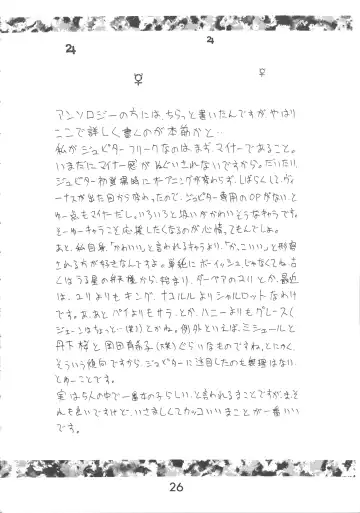 ♃
♃
♀
♀
アンソロジーの方には、ちらっと書いたんですがやはり
ここで詳しく書くのが本筋かと…
私がジュピターフリークなのは、まず、マイナーであること。
いまだにマイナー感がぬぐいきれないですから。だいたい、
ジュピター初登場時にオープニングが変わらず、しばらくして、ヴィ
ーナスが出た回から変わったので、ジュピター専用のOPがない、と
ゆー点もマイナーだし。いろいろと扱いがかわいそうなキャラです。
そーゆーキャラこそ応援したくなるのが心情ってもんでしょ。
あと、私自身、「かわいい」と言われるキャラより、「かっこいい」と形容
される方が好きなんですよ。単純にボーイッシュ、じゃなくてね。古
くはうる星の弁天様から、始まり、ダーペアのユリとか、最近
は、ユリよりもキング、ナコルルよりシャルロットなわけ
です。あ、あと ベイよりもサラ、とか、ハニーよりもグレース(
ジェーンはちょっと…(笑))とかね。例外といえば、ミシュールと
丹下桜と岡田有希子(笑)ぐらいなものですね。とにかく、
そういう傾向ですから、ジュピターに注目したのも無理はない、
とゆーことです。
実は5人の中で一番女の子らしい、と言われることですが、ま、そ
んも良いですけど、いさましくてカッコいいことが一番いい
です。
26